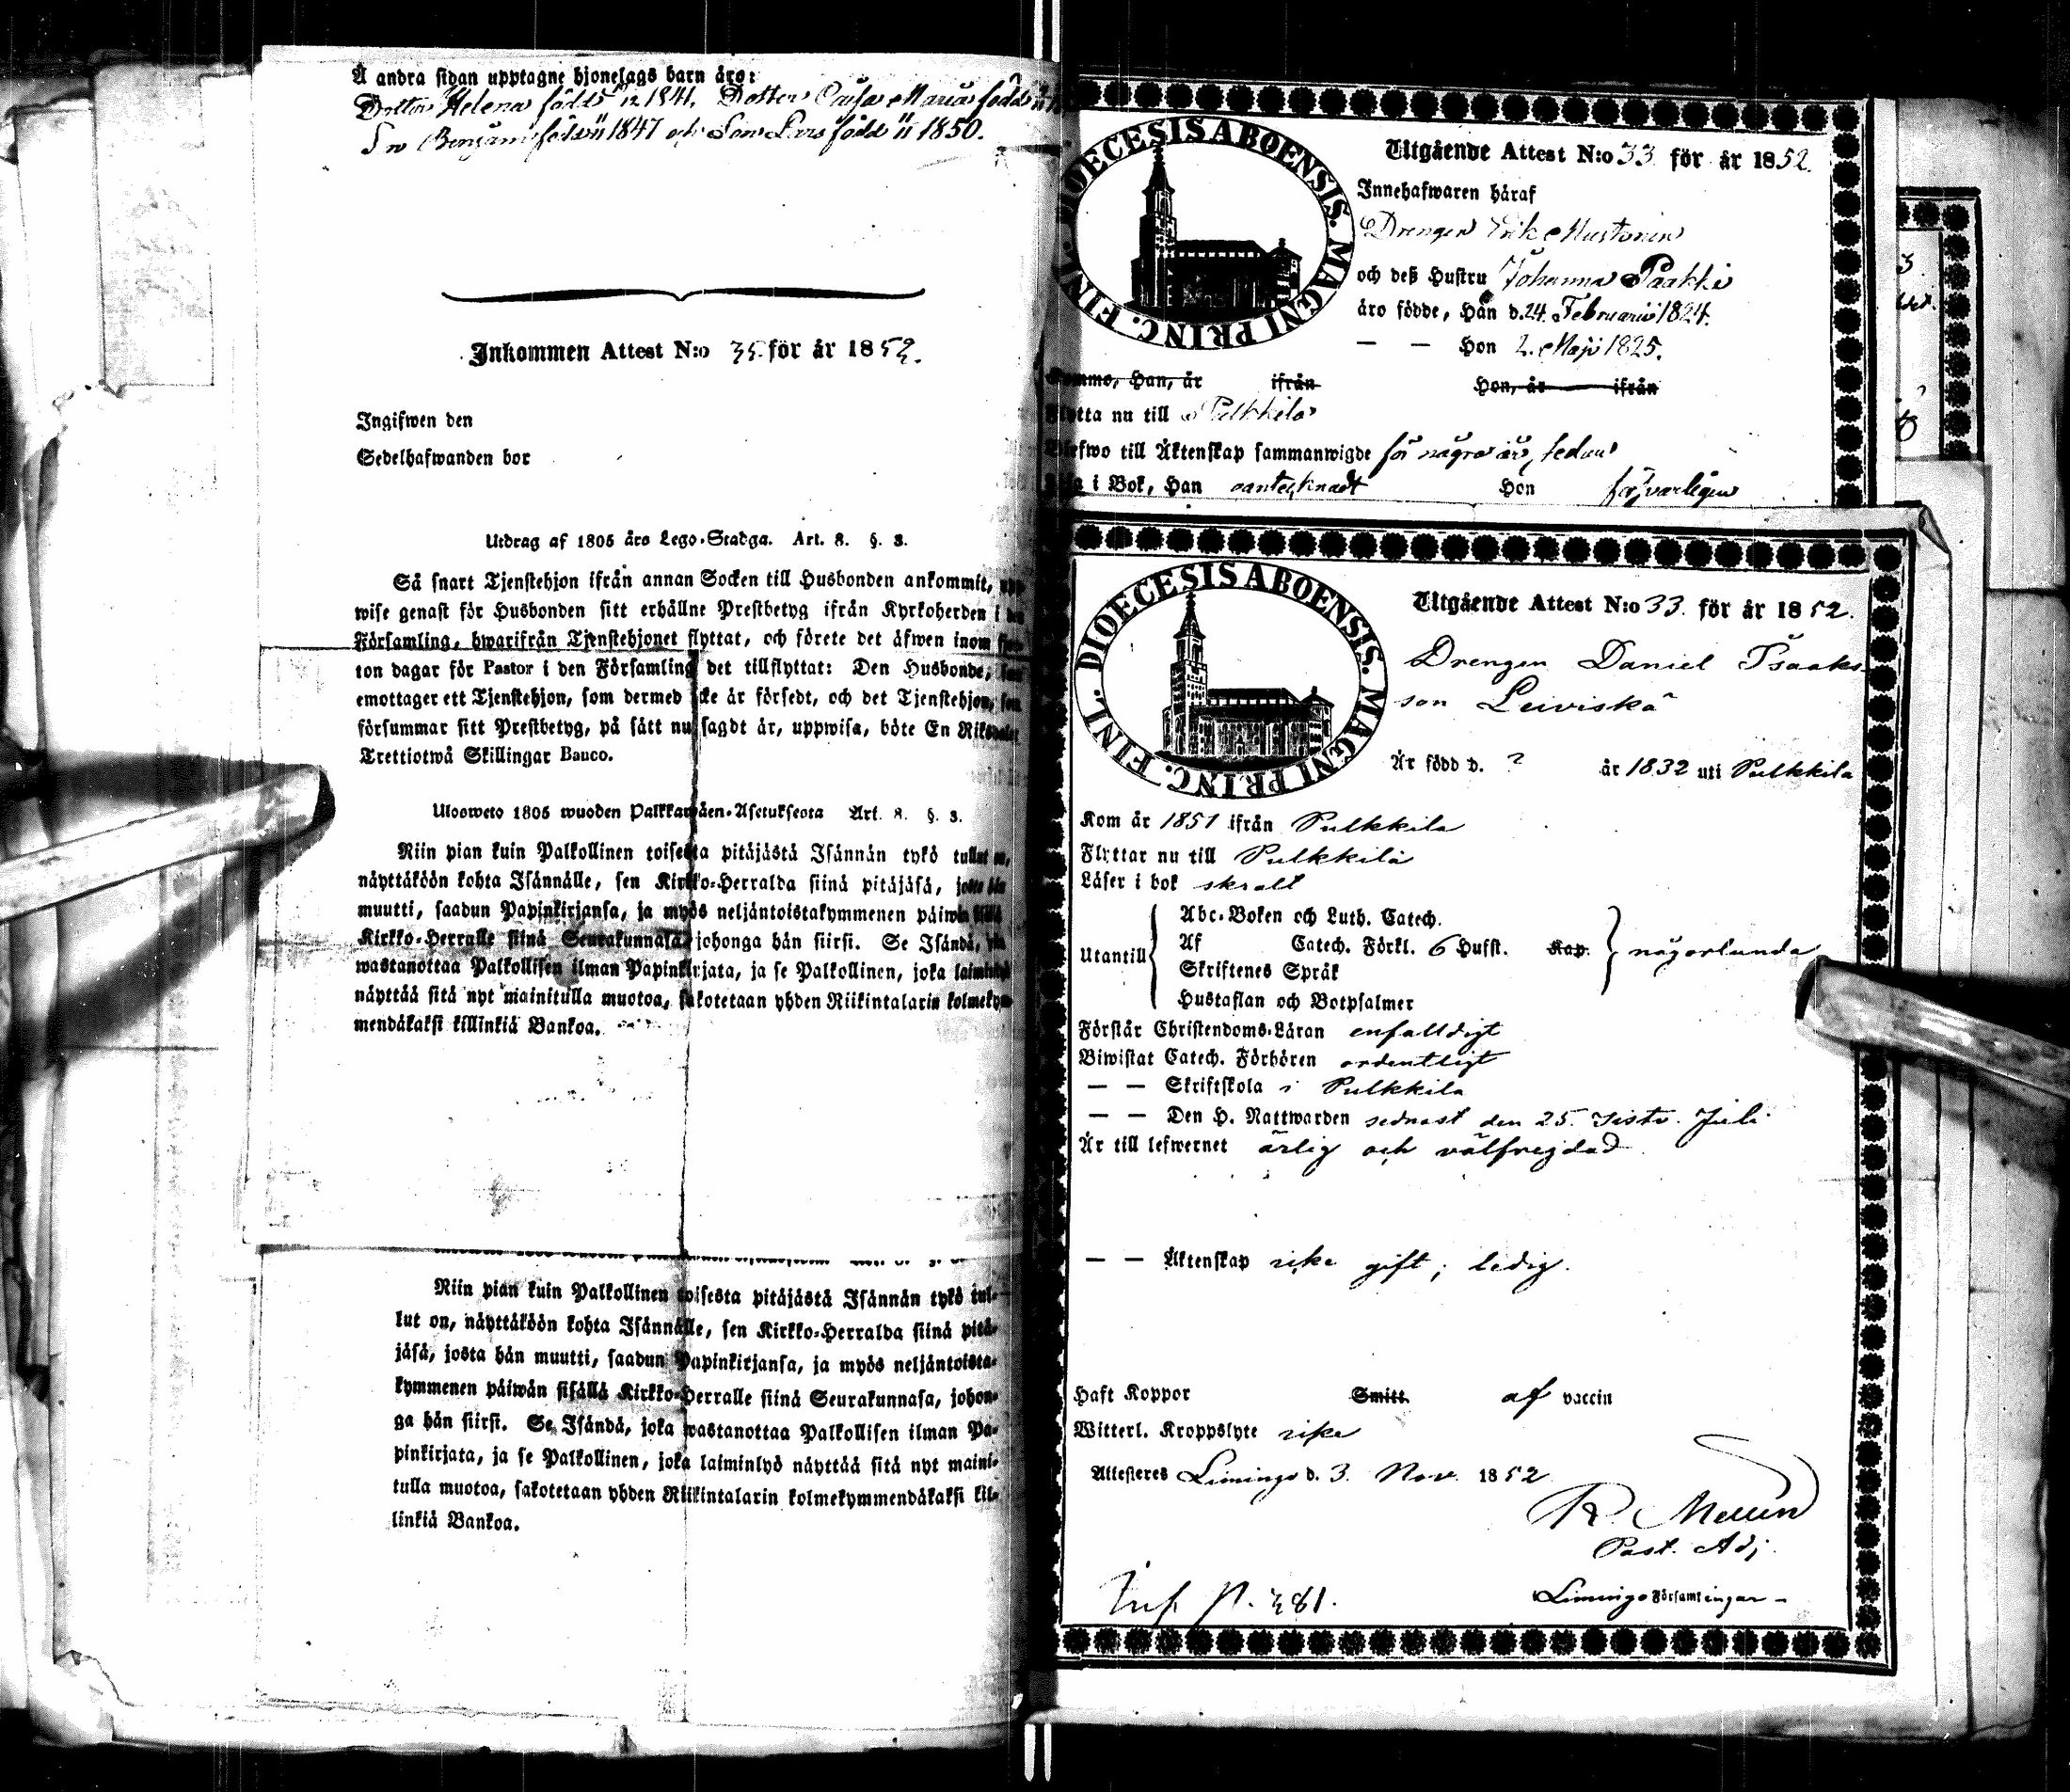 Å andra sidan upptagne hjonelags barn äro:
Dotter Helena född 1841. Dotter Maria född
Son Benjam född 1847 och Son Lars född 1850.
Inkommen Attest N:o 35 för år 1852.
Ingifwen den
Sedelhafwanden bor
Utdrag af 1805 års Lego-Stadga. Art. 8. §. 3.
Så snart Tjenstehjon ifrån annan Socken till Husbonden ankommit,
wise genast för Husbonden sitt erhållne Prestbetyg ifrån Kyrkoherden i
Församling, hwarifrån Tjenstehjonet flyttat, och förete det äfwen inom
ton dagar för Pastor i den Församling det tillflyttat: Den Husbonde,
emottager ett Tjenstehjon, som dermed icke är försedt, och det Tjenstehjon,
försummar sitt Prestbetyg, på sätt nu sagdt är, uppwisa, böte En Riksdaler
Trettiotwå Skillingar Banco.
Ulosweto 1805 wuoden Palkkawäen-Asetuksesta Art. 8. §. 3.
Niin pian kuin Palkollinen toisesta pitäjästä Isännän tykö tullut
näyttäköön kohta Isännälle, sen Kirkko-Herralda siinä pitäjäsä, josta
muutti, saadun Papinkirjansa, ja myös neljäntoistakymmenen päiwän
Kirkko-Herralle siinä Seurakunnasa, johonga hän siirsi. Se Isändä,
wastanottaa Palkollisen ilman Papinkirjata, ja se Palkollinen, joka laiminlyö
näyttää sitä nyt mainitulla muotoa, sakotetaan yhden Riikintalarin kolmekym-
mendäkaksi killinkiä Bankoa.
Niin pian kuin Palkollinen toisesta pitäjästä Isännän tykö tul-
lut on, näyttäköön kohta Isännälle, sen Kirkko-Herralda siinä pitä-
jäsä, josta hän muutti, saadun Papinkirjansa, ja myös neljäntoista-
kymmenen päiwän sisällä Kirkko-Herralle siinä Seurakunnasa, johon-
ga hän siirsi. Se Isändä, joka wastanottaa Palkollisen ilman Pa-
pinkirjata, ja se Palkollinen, joka laiminlyö näyttää sitä nyt maini-
tulla muotoa, sakotetaan yhden Riikintalarin kolmekymmendäkaksi kil-
linkiä Bankoa.
DIOECESIS ABOENSIS. MAGNI PRINC. FINL.
Utgående Attest N:o 33. för år 1852.
Innehafwaren häraf
Drengen Erik Mustonen
och deß Hustru Johanna Paakki
äro födde, Han d. 24. Februarii 1824.
— — Hon 2. Maji 1825.
Kommo, Han, år ifrån Hon, år ifrån
Flytta nu till Pulkkila
Blefwo till Äktenskap sammanwigde för några år sedan
Läsa i Bok, Han oantecknadt Hon försvarligen
DIOECESIS ABOENSIS. MAGNI PRINC. FINL.
Utgående Attest N:o 33. för år 1852.
Drengen Daniel Isaaks-
son Leiviskä
Är född d. ? år 1832 uti Pulkkila
Kom år 1851 ifrån Pulkkila
Flyttar nu till Pulkkila
Läser i bok skralt
Utantill Abc-Boken och Luth. Catech.
Af Catech. Förkl. 6 Hufst. Kap. någorlunda
Skriftenes Språk
Hustaflan och Botpsalmer
Förstår Christendoms-Läran enfaldigt
Biwistat Catech. Förhören ordentligt
— — Skriftskola i Pulkkila
— — Den H. Nattwarden sednast den 25. sistv. Juli
Är till lefwernet ärlig och välfrejdad
— — Äktenskap icke gift; ledig.
Haft Koppor Smitt. af vaccin
Witterl. Kroppslyte icke
Attesteres Limingo d. 3. Nov. 1852
R. Mellin
Past. Adj.
Limingo Församlingar-
Inf. p. 381.